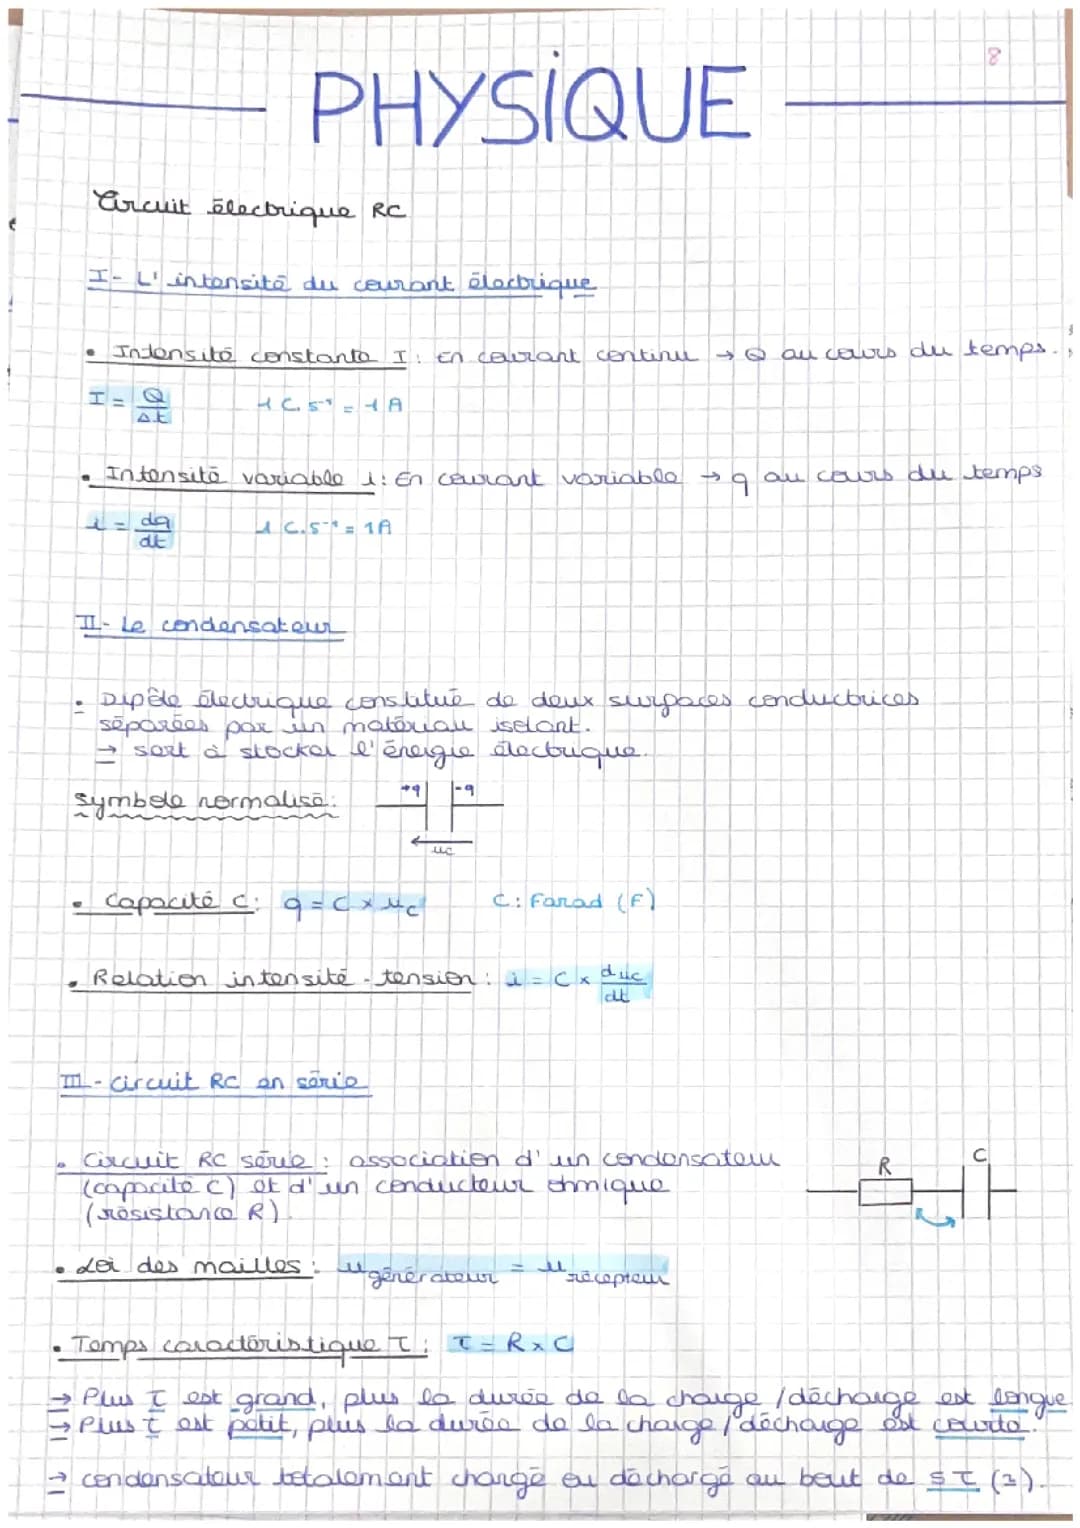 8
PHYSIQUE
Circuit électrique RC
I- L'intensité du courant électrique
• Intensité constante I : En courant continu → Q au cours du temps.
I = Q/Δt 1 C.s⁻¹ = 1 A
• Intensité variable i : En courant variable → q au cours du temps
i = dq/dt 1 C.s⁻¹ = 1A
II- Le condensateur
• Dipôle électrique constitué de deux surfaces conductrices
séparées par un matériau isolant.
→ sert à stocker l'énergie électrique.
symbole normalisé: +q -q
uc
• Capacité C: q = C × uc C: Farad (F)
• Relation intensité - tension : i = C × duc/dt
III - circuit RC en série
• Circuit RC série : association d'un condensateur
(capacité C) et d'un conducteur ohmique
(résistance R).
R C
• Loi des mailles : u générateur = u récepteur
• Temps caractéristique τ : τ = R × C
→ Plus τ est grand, plus la durée de la charge / décharge est longue
→ Plus τ est petit, plus la durée de la charge / décharge est courte.
→ condensateur totalement chargé ou déchargé au bout de 5 τ (s).